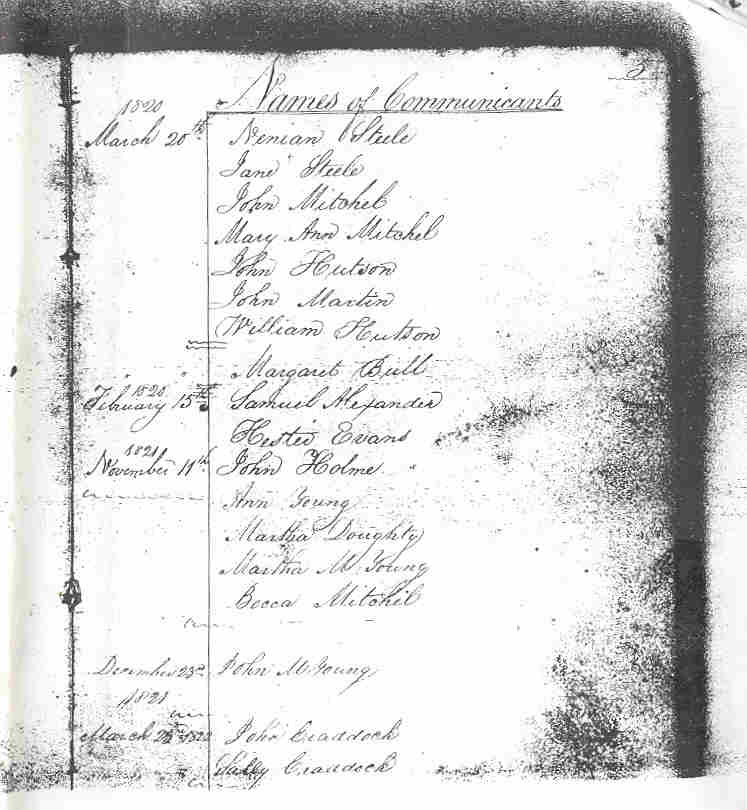 2
Names of Communicants
1820
March 20th Nenian Steele
Jane Steele
John Mitchel
Mary Ann Mitchel
John Hutson
John Martin
William Hutson
" " Margaret Bull
1820
February 15th Samuel Alexander
Hester Evans
1821
November 11th John Holme
Ann Young
Martha Doughty
Martha M Young
Becca Mitchel
December 23rd John M Young
1821
March 1822 John Craddock
Sally Craddock